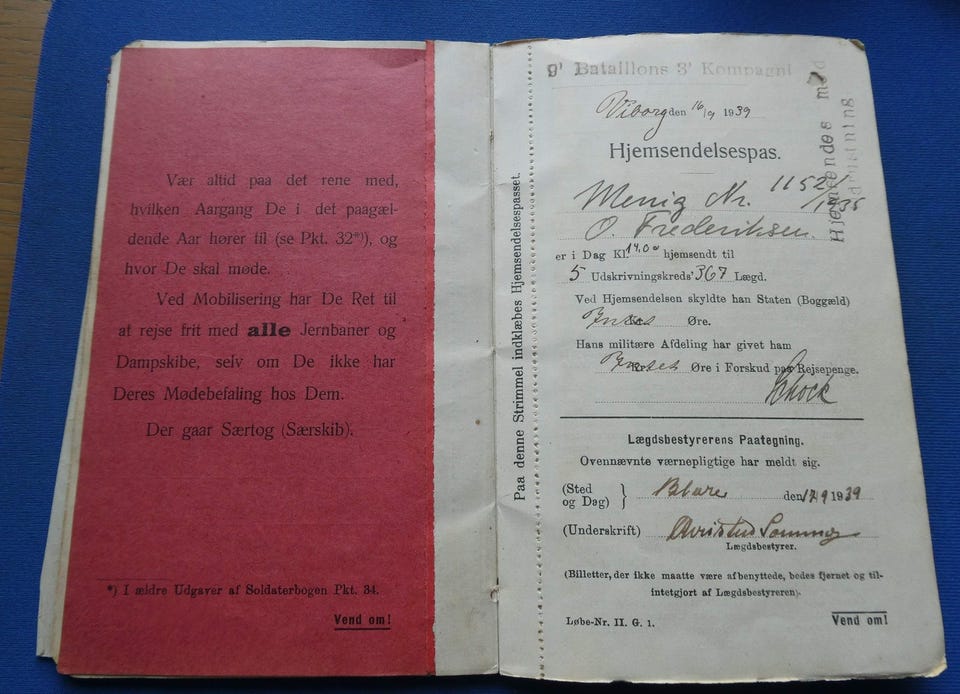 Vær altid paa det rene med,
hvilken Aargang De i det paagæl-
dende Aar hører til (se Pkt. 32*)), og
hvor De skal møde.
Ved Mobilisering har De Ret til
at rejse frit med alle Jernbaner og
Dampskibe, selv om De ikke har
Deres Mødebefaling hos Dem.
Der gaar Særtog (Særskib).
*) I ældre Udgaver af Soldaterbogen Pkt. 34.
Vend om!
Paa denne Strimmel indklæbes Hjemsendelsespasset.
9' Bataillons 3' Kompagni
Hjemsendes med
Viborg den 16/9 1939
Hjemsendelsespas.
Menig Nr. 1152
O. Frederiksen
er i Dag Kl. 14.00 hjemsendt til
5 Udskrivningskreds' 367 Lægd.
Ved Hjemsendelsen skyldte han Staten (Boggæld)
Øre.
Hans militære Afdeling har givet ham
Øre i Forskud paa Rejsepenge.
Lægdsbestyrerens Paategning.
Ovennævnte værnepligtige har meldt sig.
(Sted
og Dag) } den 17 9 1939
(Underskrift)
Lægdsbestyrer.
(Billetter, der ikke maatte være afbenyttede, bedes fjernet og til-
intetgjort af Lægdsbestyreren).
Løbe-Nr. II. G. 1.
Vend om!